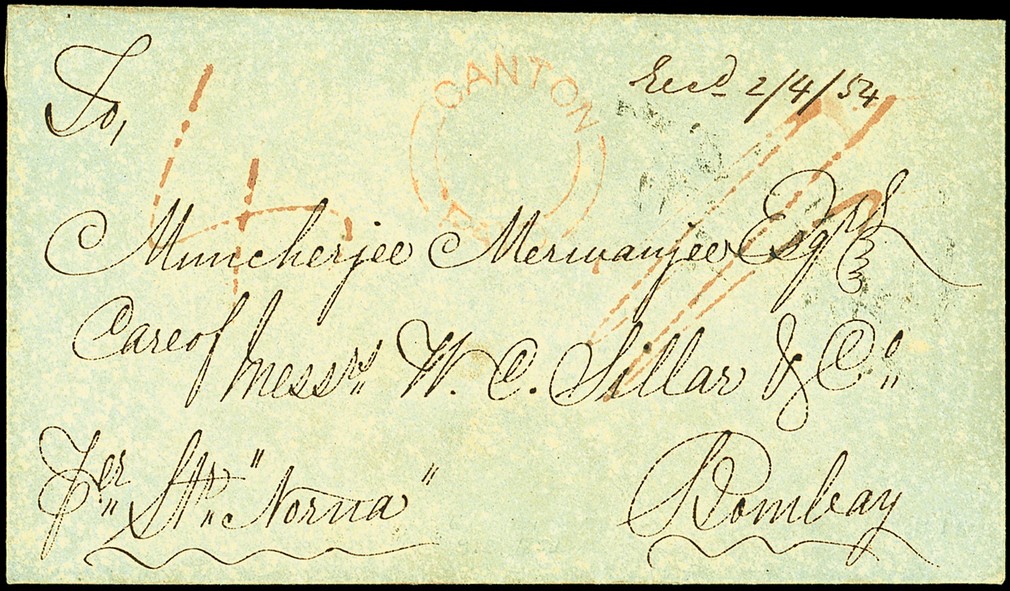 To,
CANTON
Recd 2/4/54
Muncherjee Merwanjee Esqre
Care of Messrs W. C. Sillar & Co.
Per Str. "Norna"
Bombay